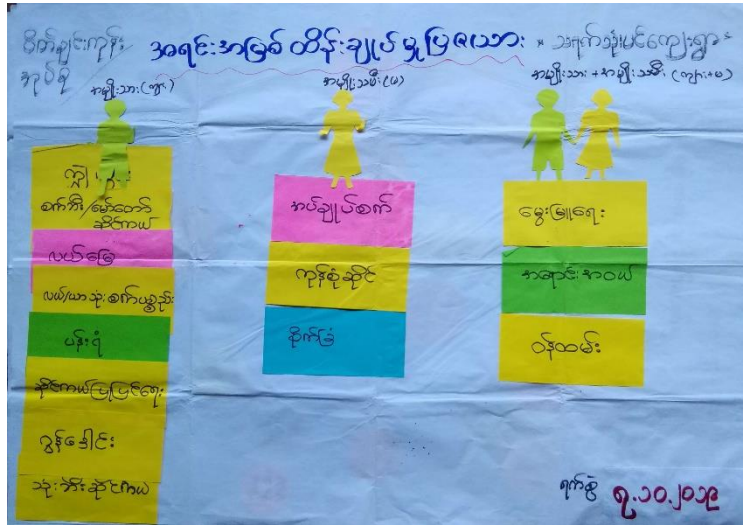 စိတ်ချင်းကုန်း အရင်းအမြစ် ထိန်းချုပ်မှုပြဇယား * သရက်သုံးပင်ကျေးရွာ *
အုပ်စု
အမျိုးသား (ကျား)
အမျိုးသမီး (မ)
အမျိုးသား + အမျိုးသမီး (ကျား+မ)
စက်ဘီး/မော်တော်
ဆိုင်ကယ်
လယ်မြေ
လယ်/ယာသုံးစက်ပစ္စည်း
ပန်းရံ
ဆိုင်ကယ်ပြုပြင်ရေး
ဂွန်ဒေါင်း
သုံးဘီးဆိုင်ကယ်
အပ်ချုပ်စက်
ကုန်စုံဆိုင်
စိုက်ခြံ
မွေးမြူရေး
အရောင်းအဝယ်
ဝန်ထမ်း
ရက်စွဲ ၇.၁၀.၂၀၁၉